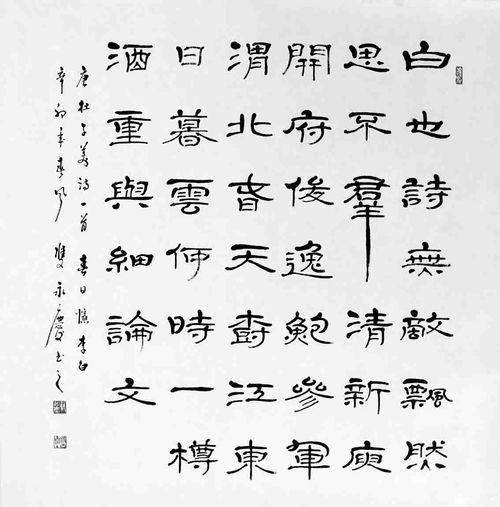 白也詩無敵飄然
思不羣清新庾
開府俊逸鮑參軍
渭北春天樹江東
日暮雲何時一樽
酒重與細論文
唐杜子美詩一首 春日憶李白
辛卯年春 雙永慶書之